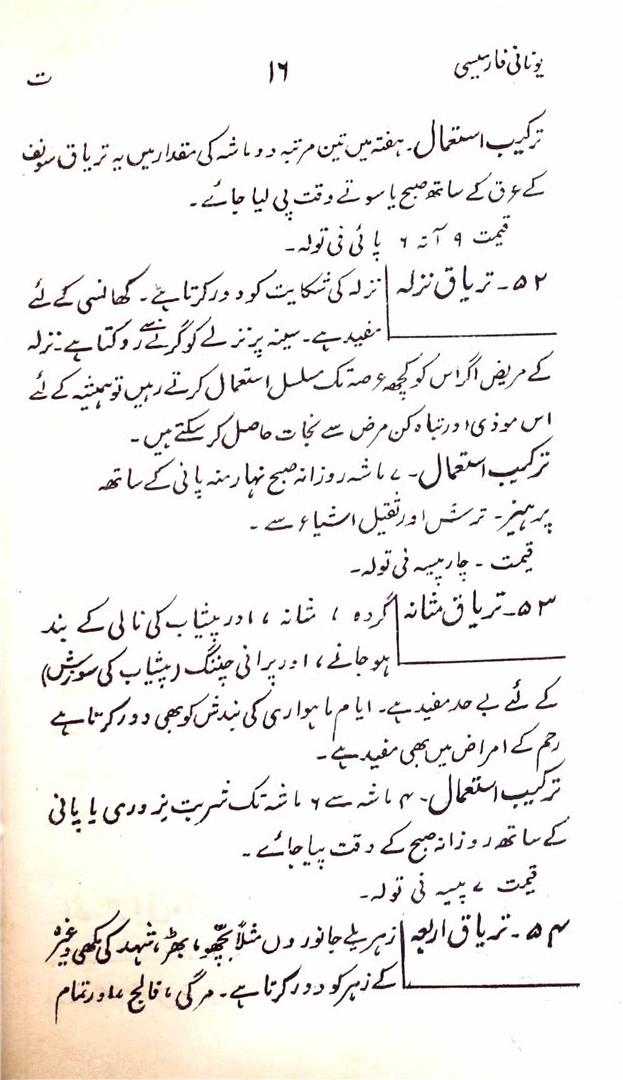 یونانی فارمیسی ۱۶ ت
ترکیب استعمال۔ ہفتہ میں تین مرتبہ دو ماشہ کی مقدار میں یہ تریاق سونف
کے عرق کے ساتھ صبح یا سوتے وقت پی لیا جائے۔
قیمت ۹ آنہ ۶ پائی فی تولہ۔
۵۲۔ تریاق نزلہ نزلہ کی شکایت کو دور کرتا ہے۔ کھانسی کے لئے
مفید ہے۔ سینہ پر نزلے کو گرنے سے روکتا ہے۔ نزلہ
کے مریض اگر اس کو کچھ عرصہ تک مسلسل استعمال کرتے رہیں تو ہمیشہ کے لئے
اس موذی اور تباہ کن مرض سے نجات حاصل کر سکتے ہیں۔
ترکیب استعمال۔ ۷ ماشہ روزانہ صبح نہار منہ پانی کے ساتھ
پرہیز۔ ترش اور ثقیل اشیاء سے۔
قیمت۔ چار پیسہ فی تولہ۔
۵۳۔ تریاق مثانہ گردہ ، مثانہ ، اور پیشاب کی نالی کے بند
ہو جانے ، اور پرانی چننگ (پیشاب کی سوزش)
کے لئے بے حد مفید ہے۔ ایام ماہواری کی بندش کو بھی دور کرتا ہے
رحم کے امراض میں بھی مفید ہے۔
ترکیب استعمال۔ ۴ ماشہ سے ۶ ماشہ تک شربت بزوری یا پانی
کے ساتھ روزانہ صبح کے وقت پیا جائے۔
قیمت ۷ پیسہ فی تولہ۔
۵۴۔ تریاق اربعہ زہریلے جانوروں مثلاً بچھو، بھڑ، شہد کی مکھی وغیرہ
کے زہر کو دور کرتا ہے۔ مرگی ، فالج ، اور تمام